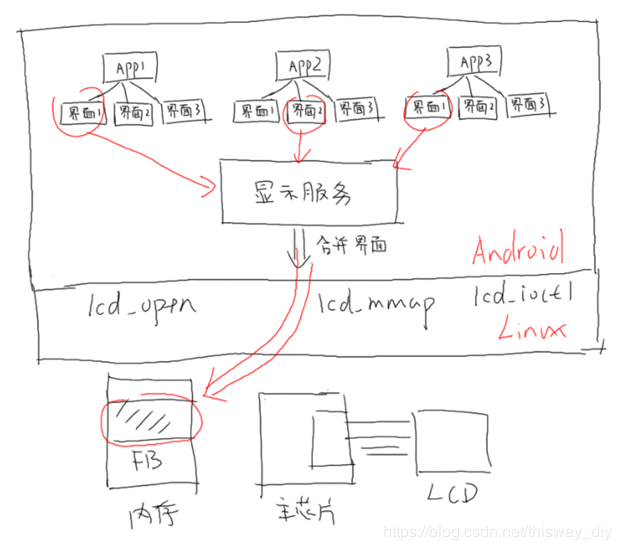 App1 App2 App3
界面1 界面2 界面3 界面1 界面2 界面3 界面1 界面2 界面3
显示服务
合并界面
Android
lcd_open lcd_mmap lcd_ioctl
Linux
FB
LCD
内存 主芯片
https://blog.csdn.net/thisway_diy